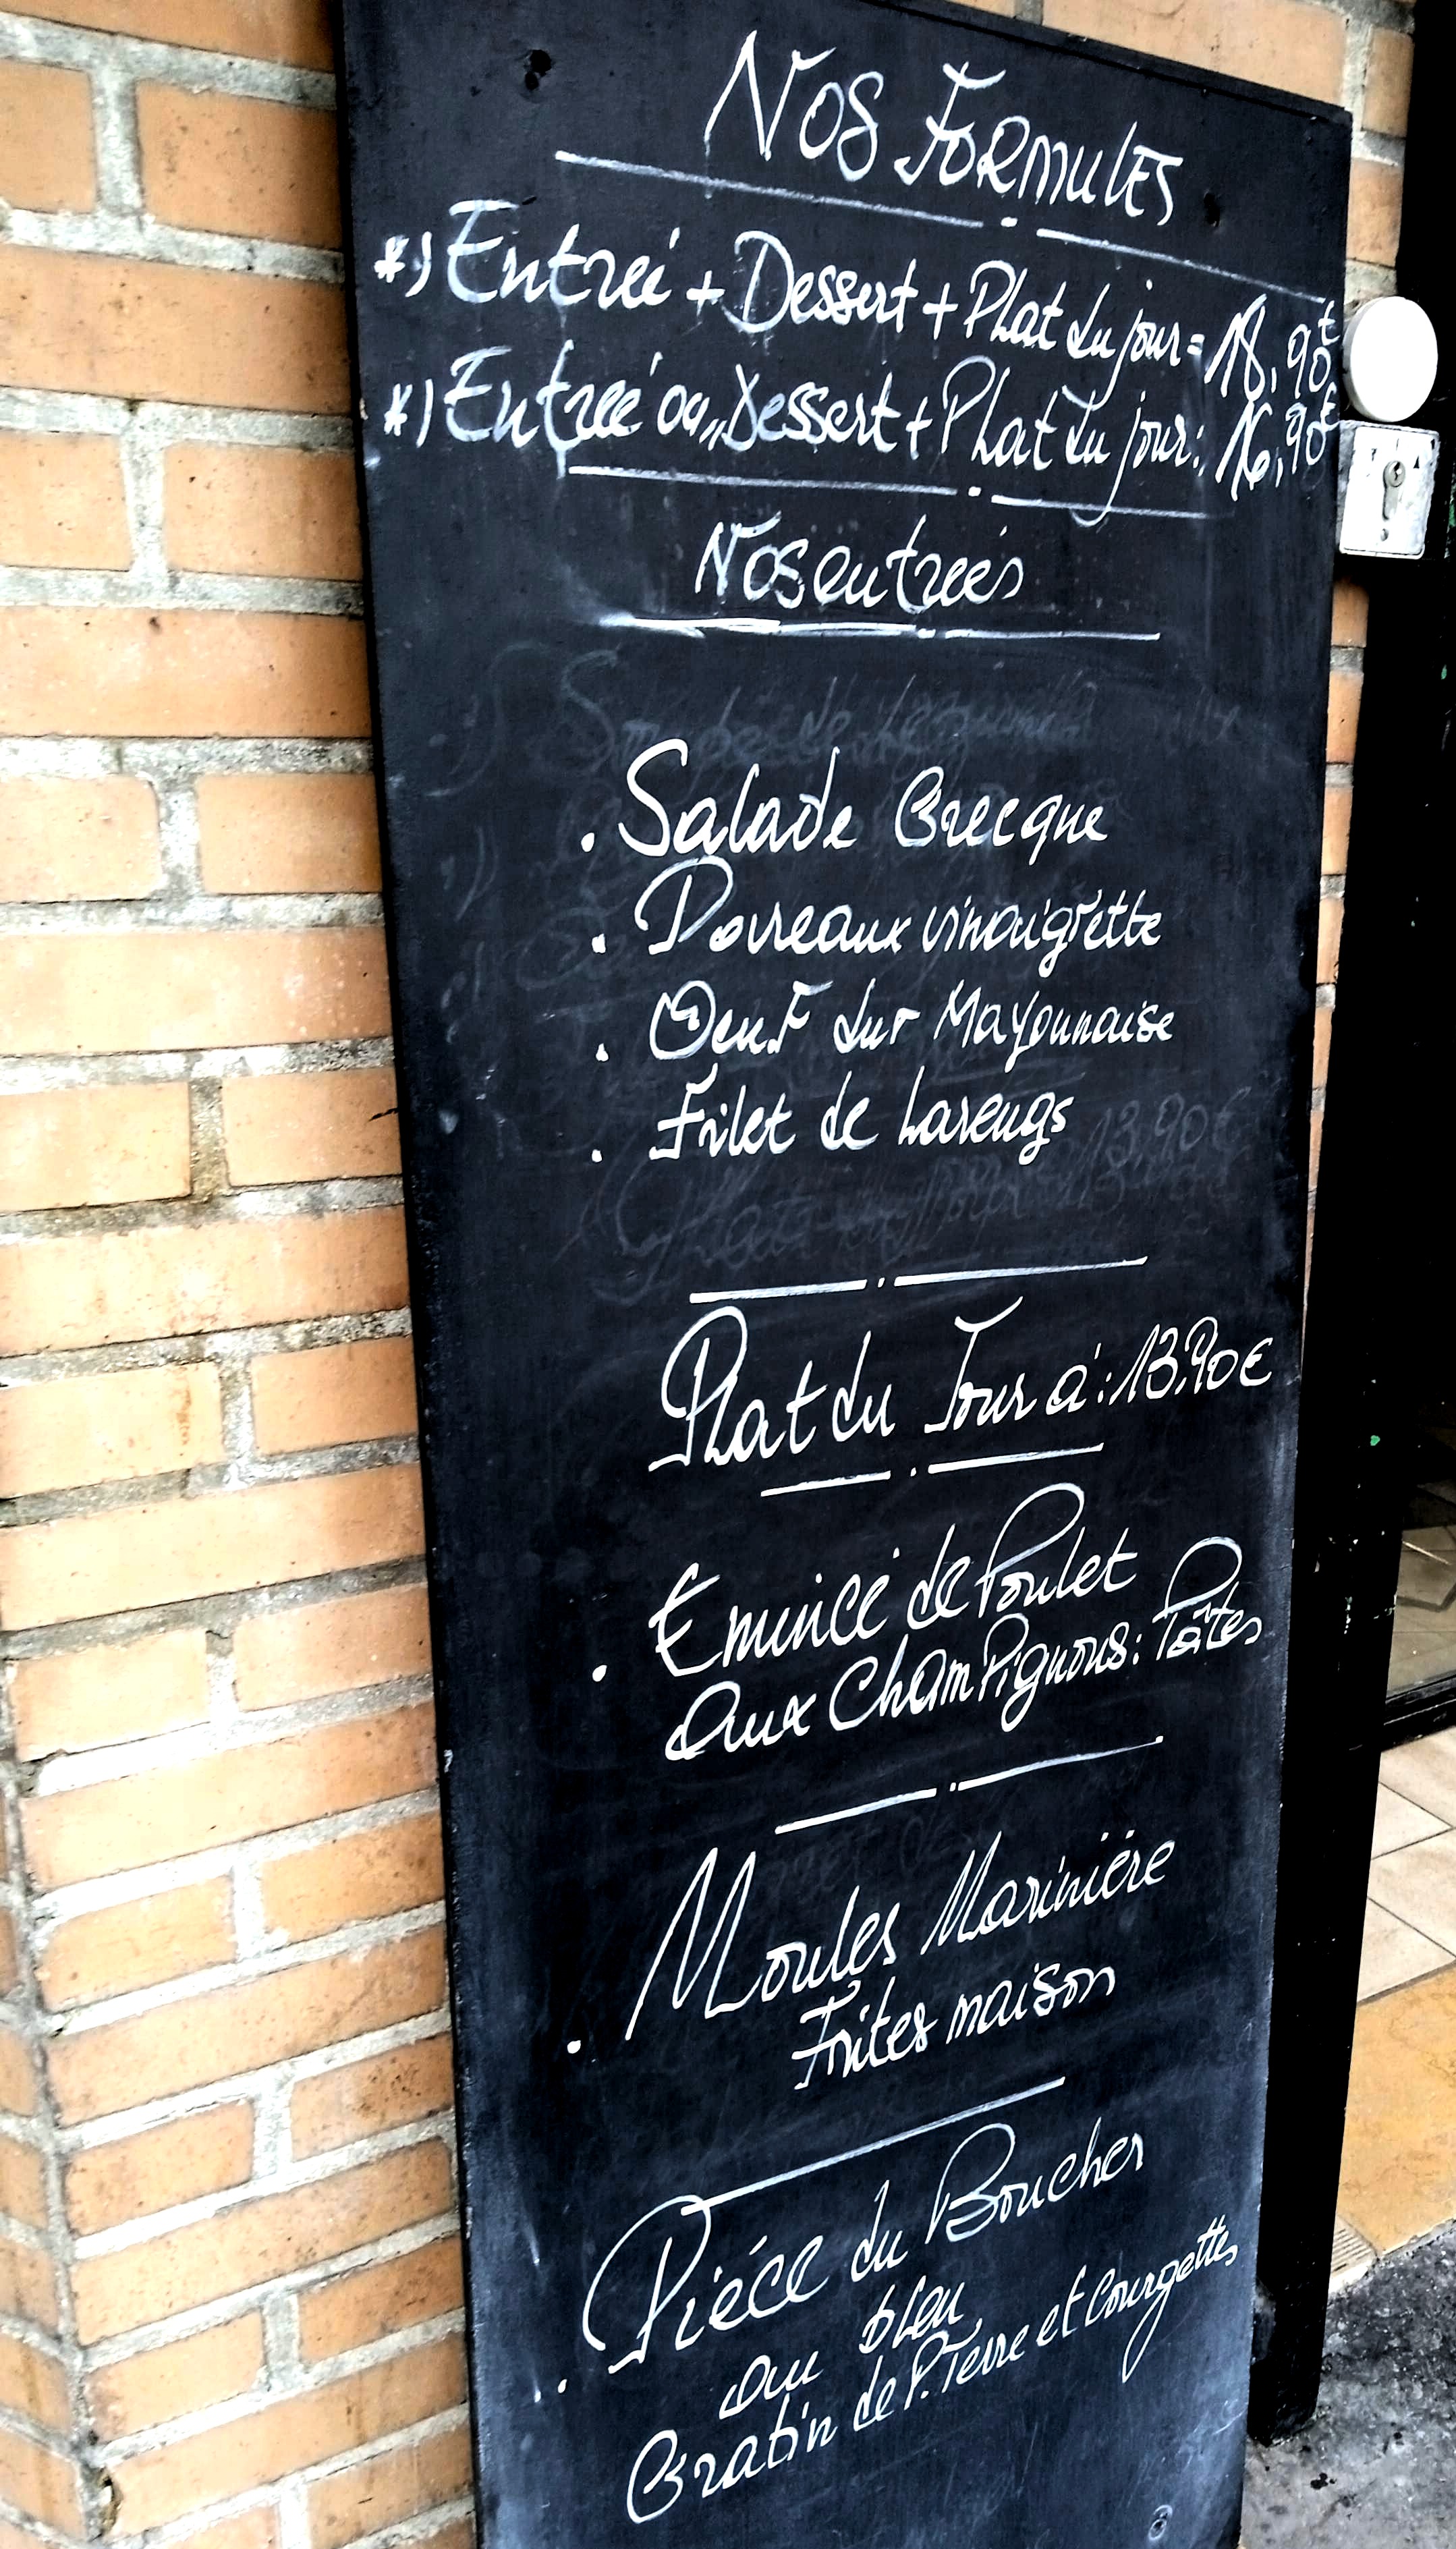 Nos Formules
*) Entreé + Dessert + Plat du jour = 18,90€
*) Entreé ou,, Dessert + Plat du jour: 16,90€
Nos entreés
. Salade Grecque
. Poireaux vinaigrette
. Oeuf dur Mayonnaise
. Filet de harengs
Plat du Jour á: 13,90€
. Emincé de Poulet
aux Champignons: Pâtes
. Moules Marinière
Frites maison
. Piéce du Boucher
au bleu
Gratin de P. Terre et Courgettes